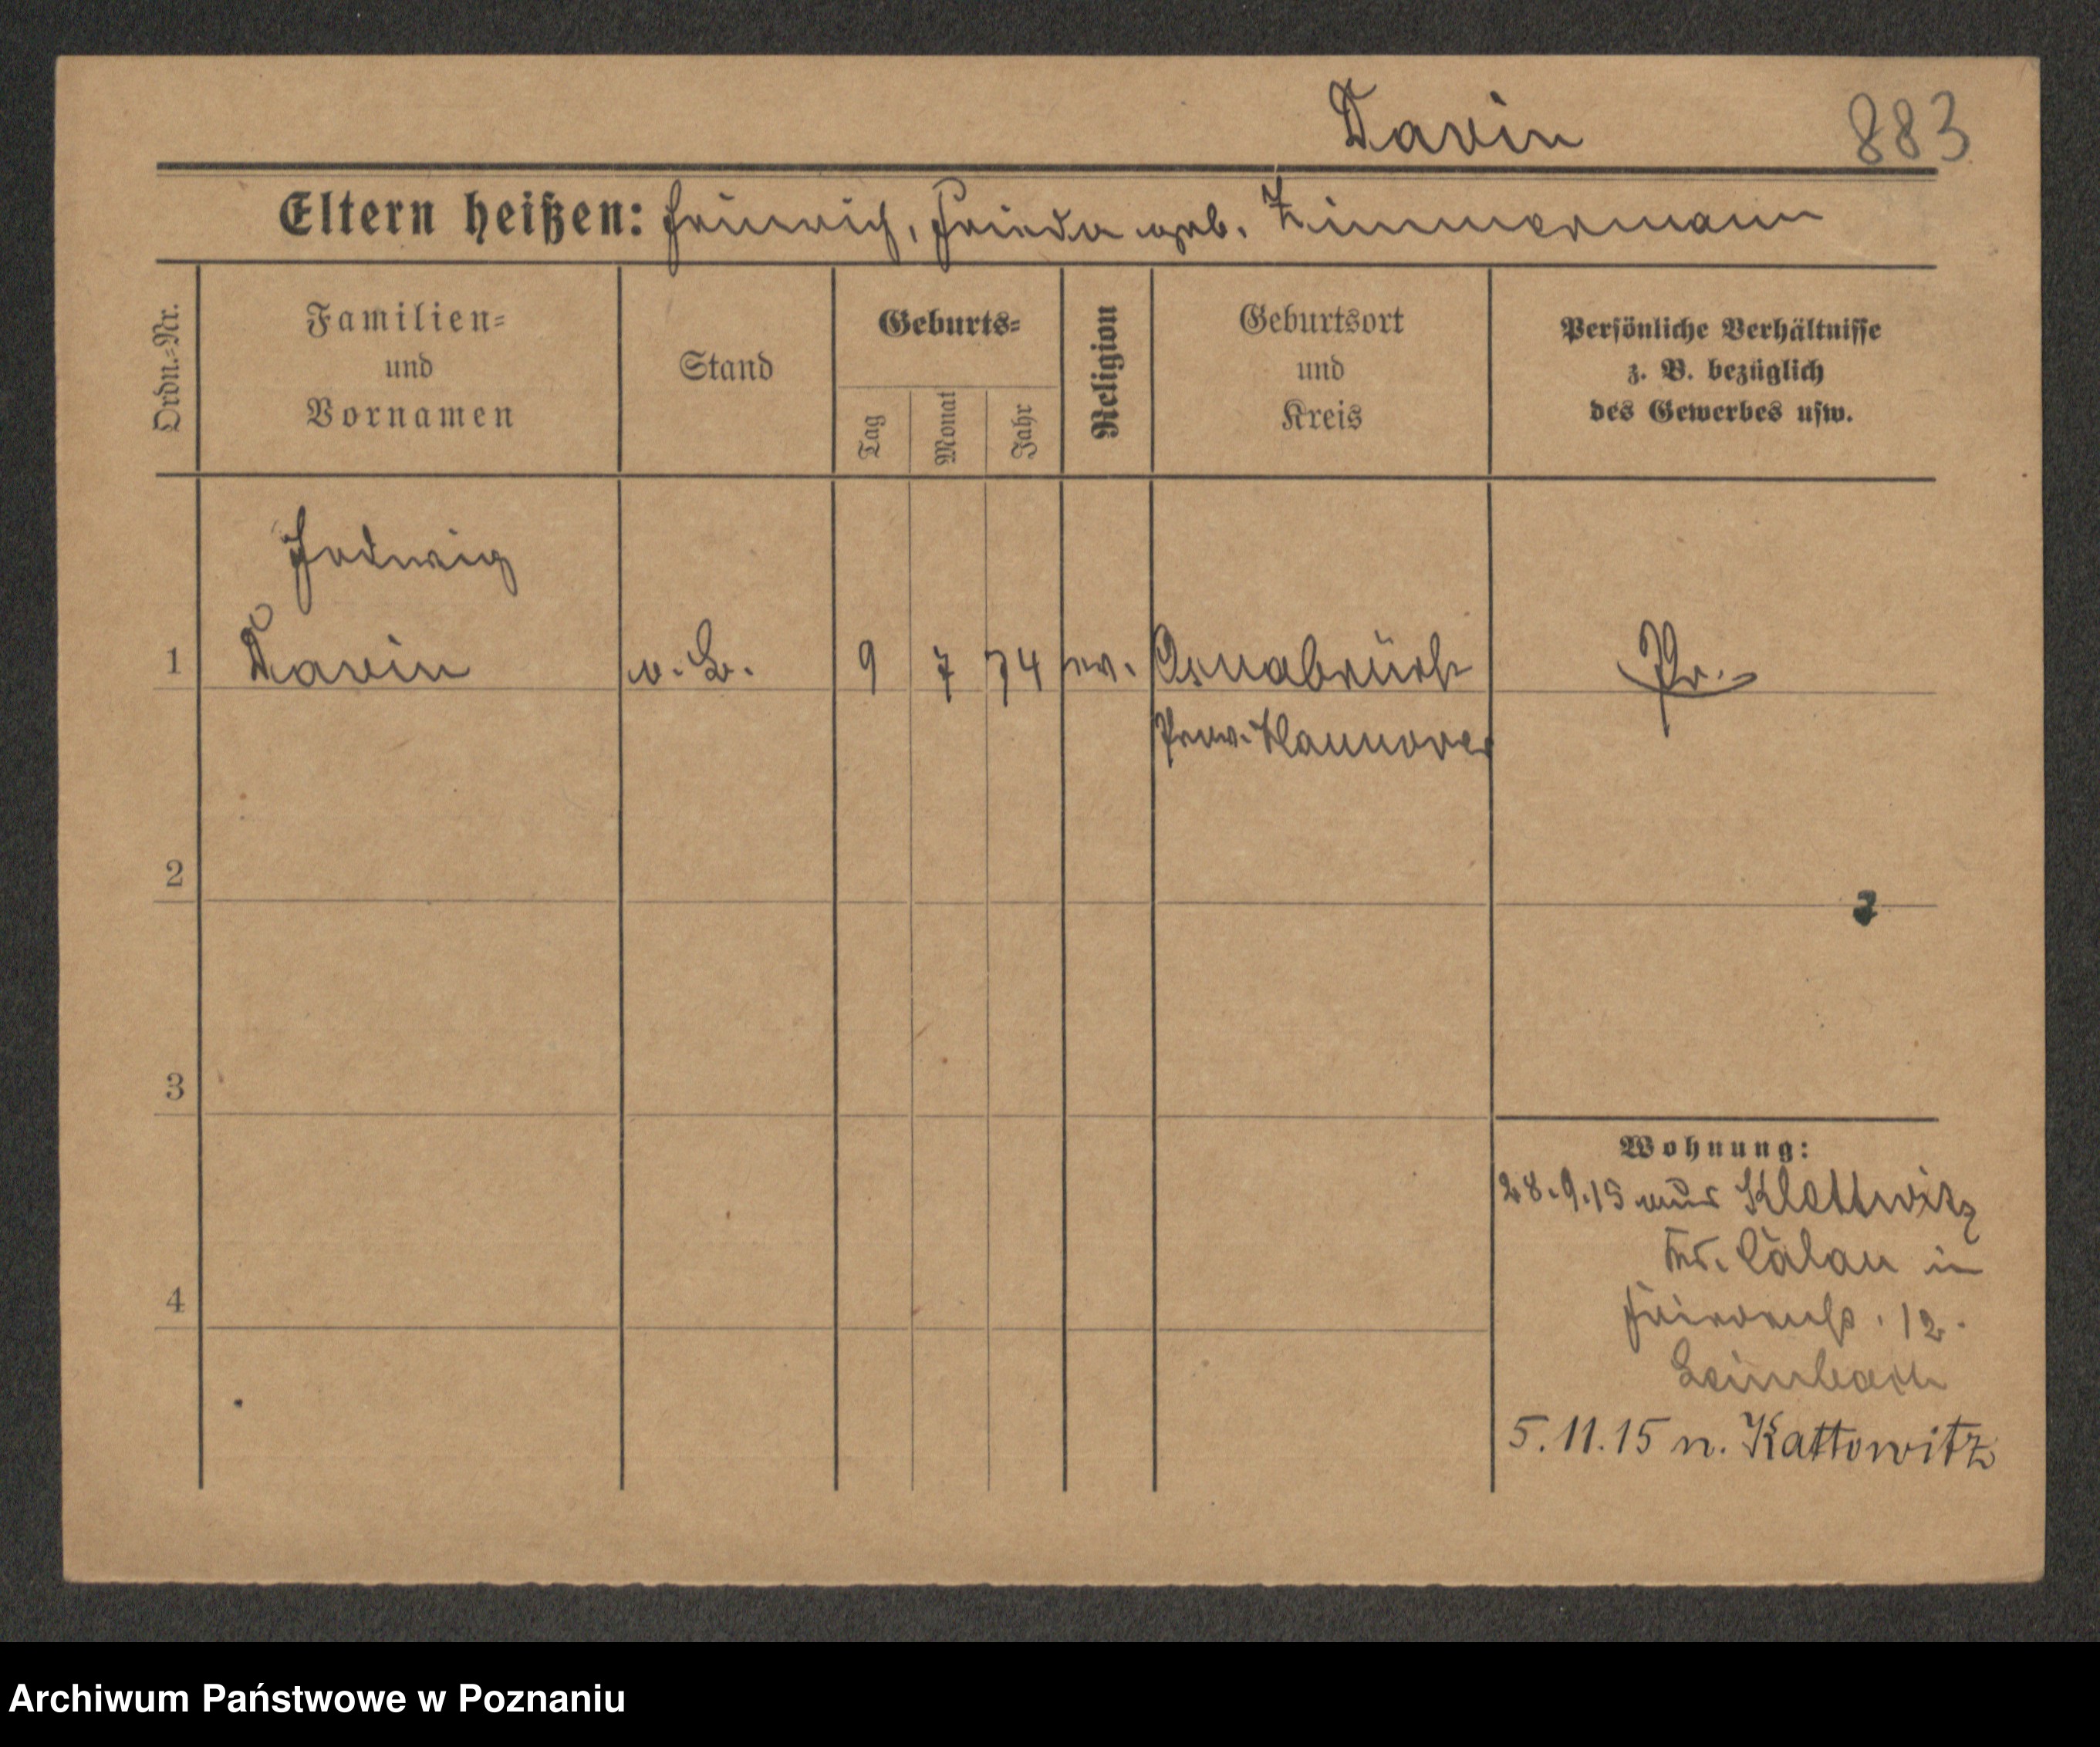 Davin 883
Eltern heißen: Heinrich, Frieda geb. Zimmermann
Ordn.-Nr.
Familien-
und
Vornamen
Stand
Geburts-
Tag
Monat
Jahr
Religion
Geburtsort
und
Kreis
Persönliche Verhältnisse
z. B. bezüglich
des Gewerbes usw.
Hedwig
1 Davin o. B. 9 7 74 ev. Osnabrück Pr.
Prov. Hannover
2
3
4
Wohnung:
28.9.15 aus Klettwitz
Kr. Calau in
12.
Leimbach
5.11.15 n. Kattowitz
Archiwum Państwowe w Poznaniu